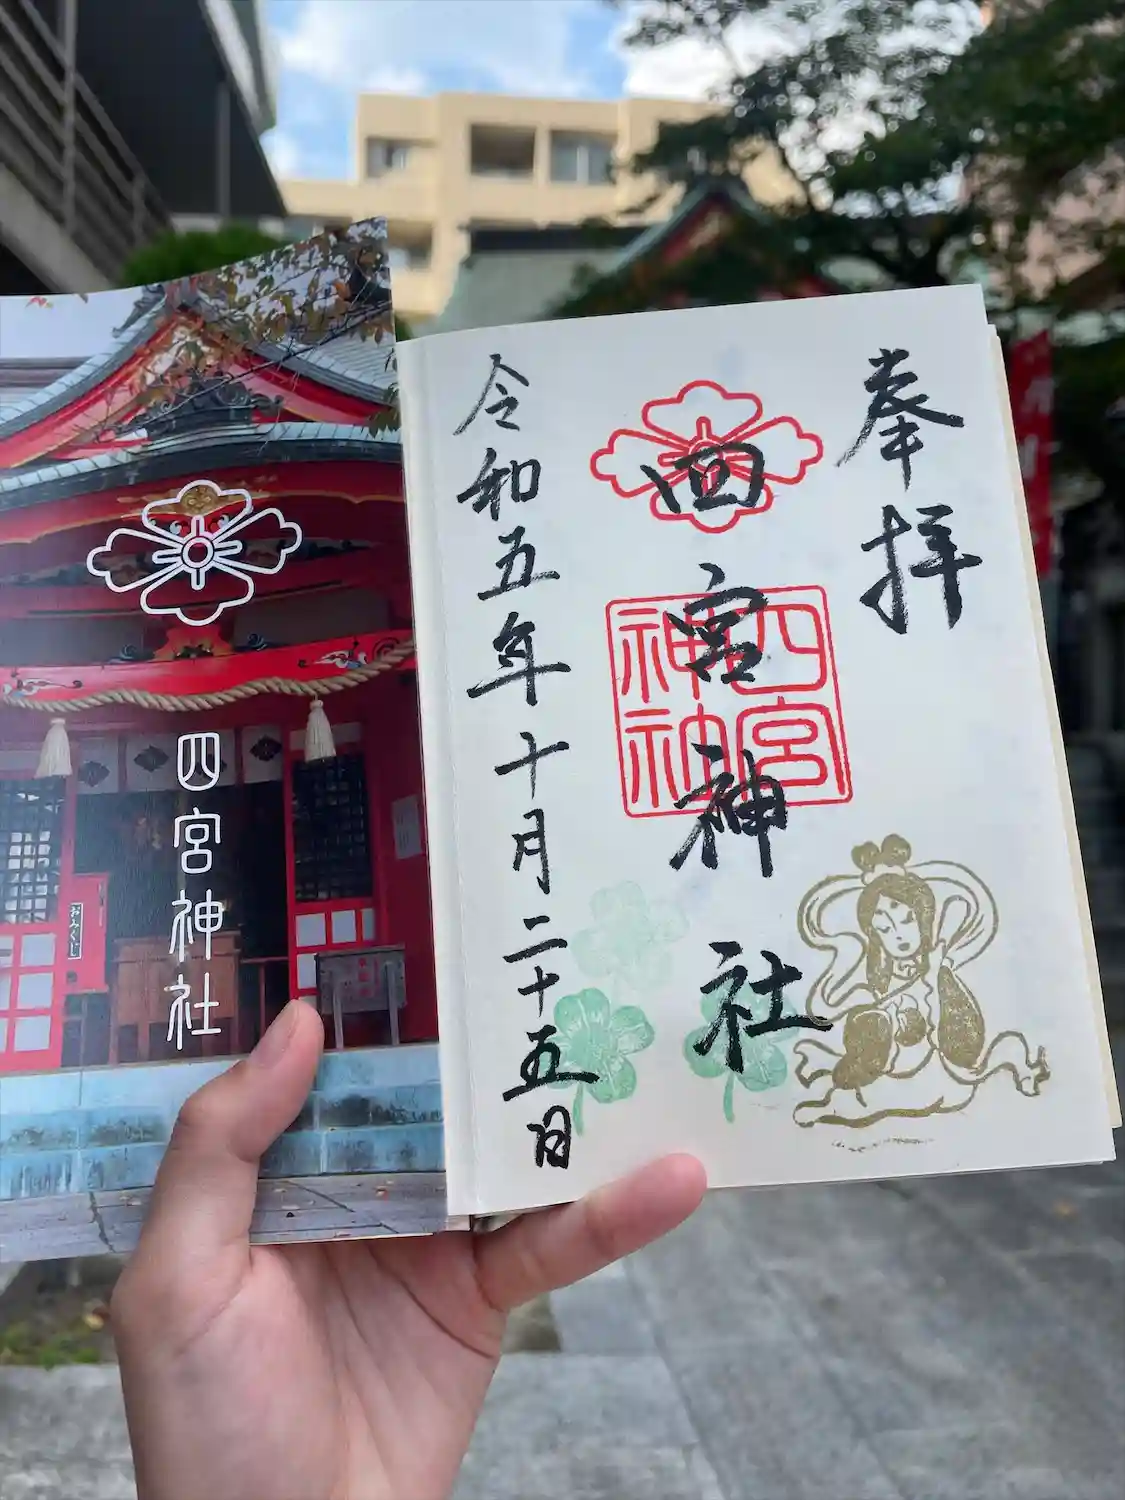 奉拝
四宮神社
四宮
神社
令和五年十月二十五日
四宮神社
おみくじ